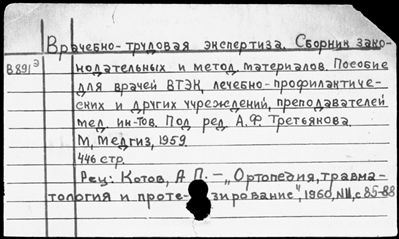 Врачебно-трудовая экспертиза. Сборник зако-
В891э нодательных и метод. материалов. Пособие
для врачей ВТЭК, лечебно-профилактиче-
ских и других учреждений, преподавателей
мед. ин-тов. Под ред. А.Ф. Третьякова.
М., Медгиз, 1959.
446 стр.
Рец: Котов, А.П. – „Ортопедия, травма-
тология и протезирование", 1960, с. 85-88